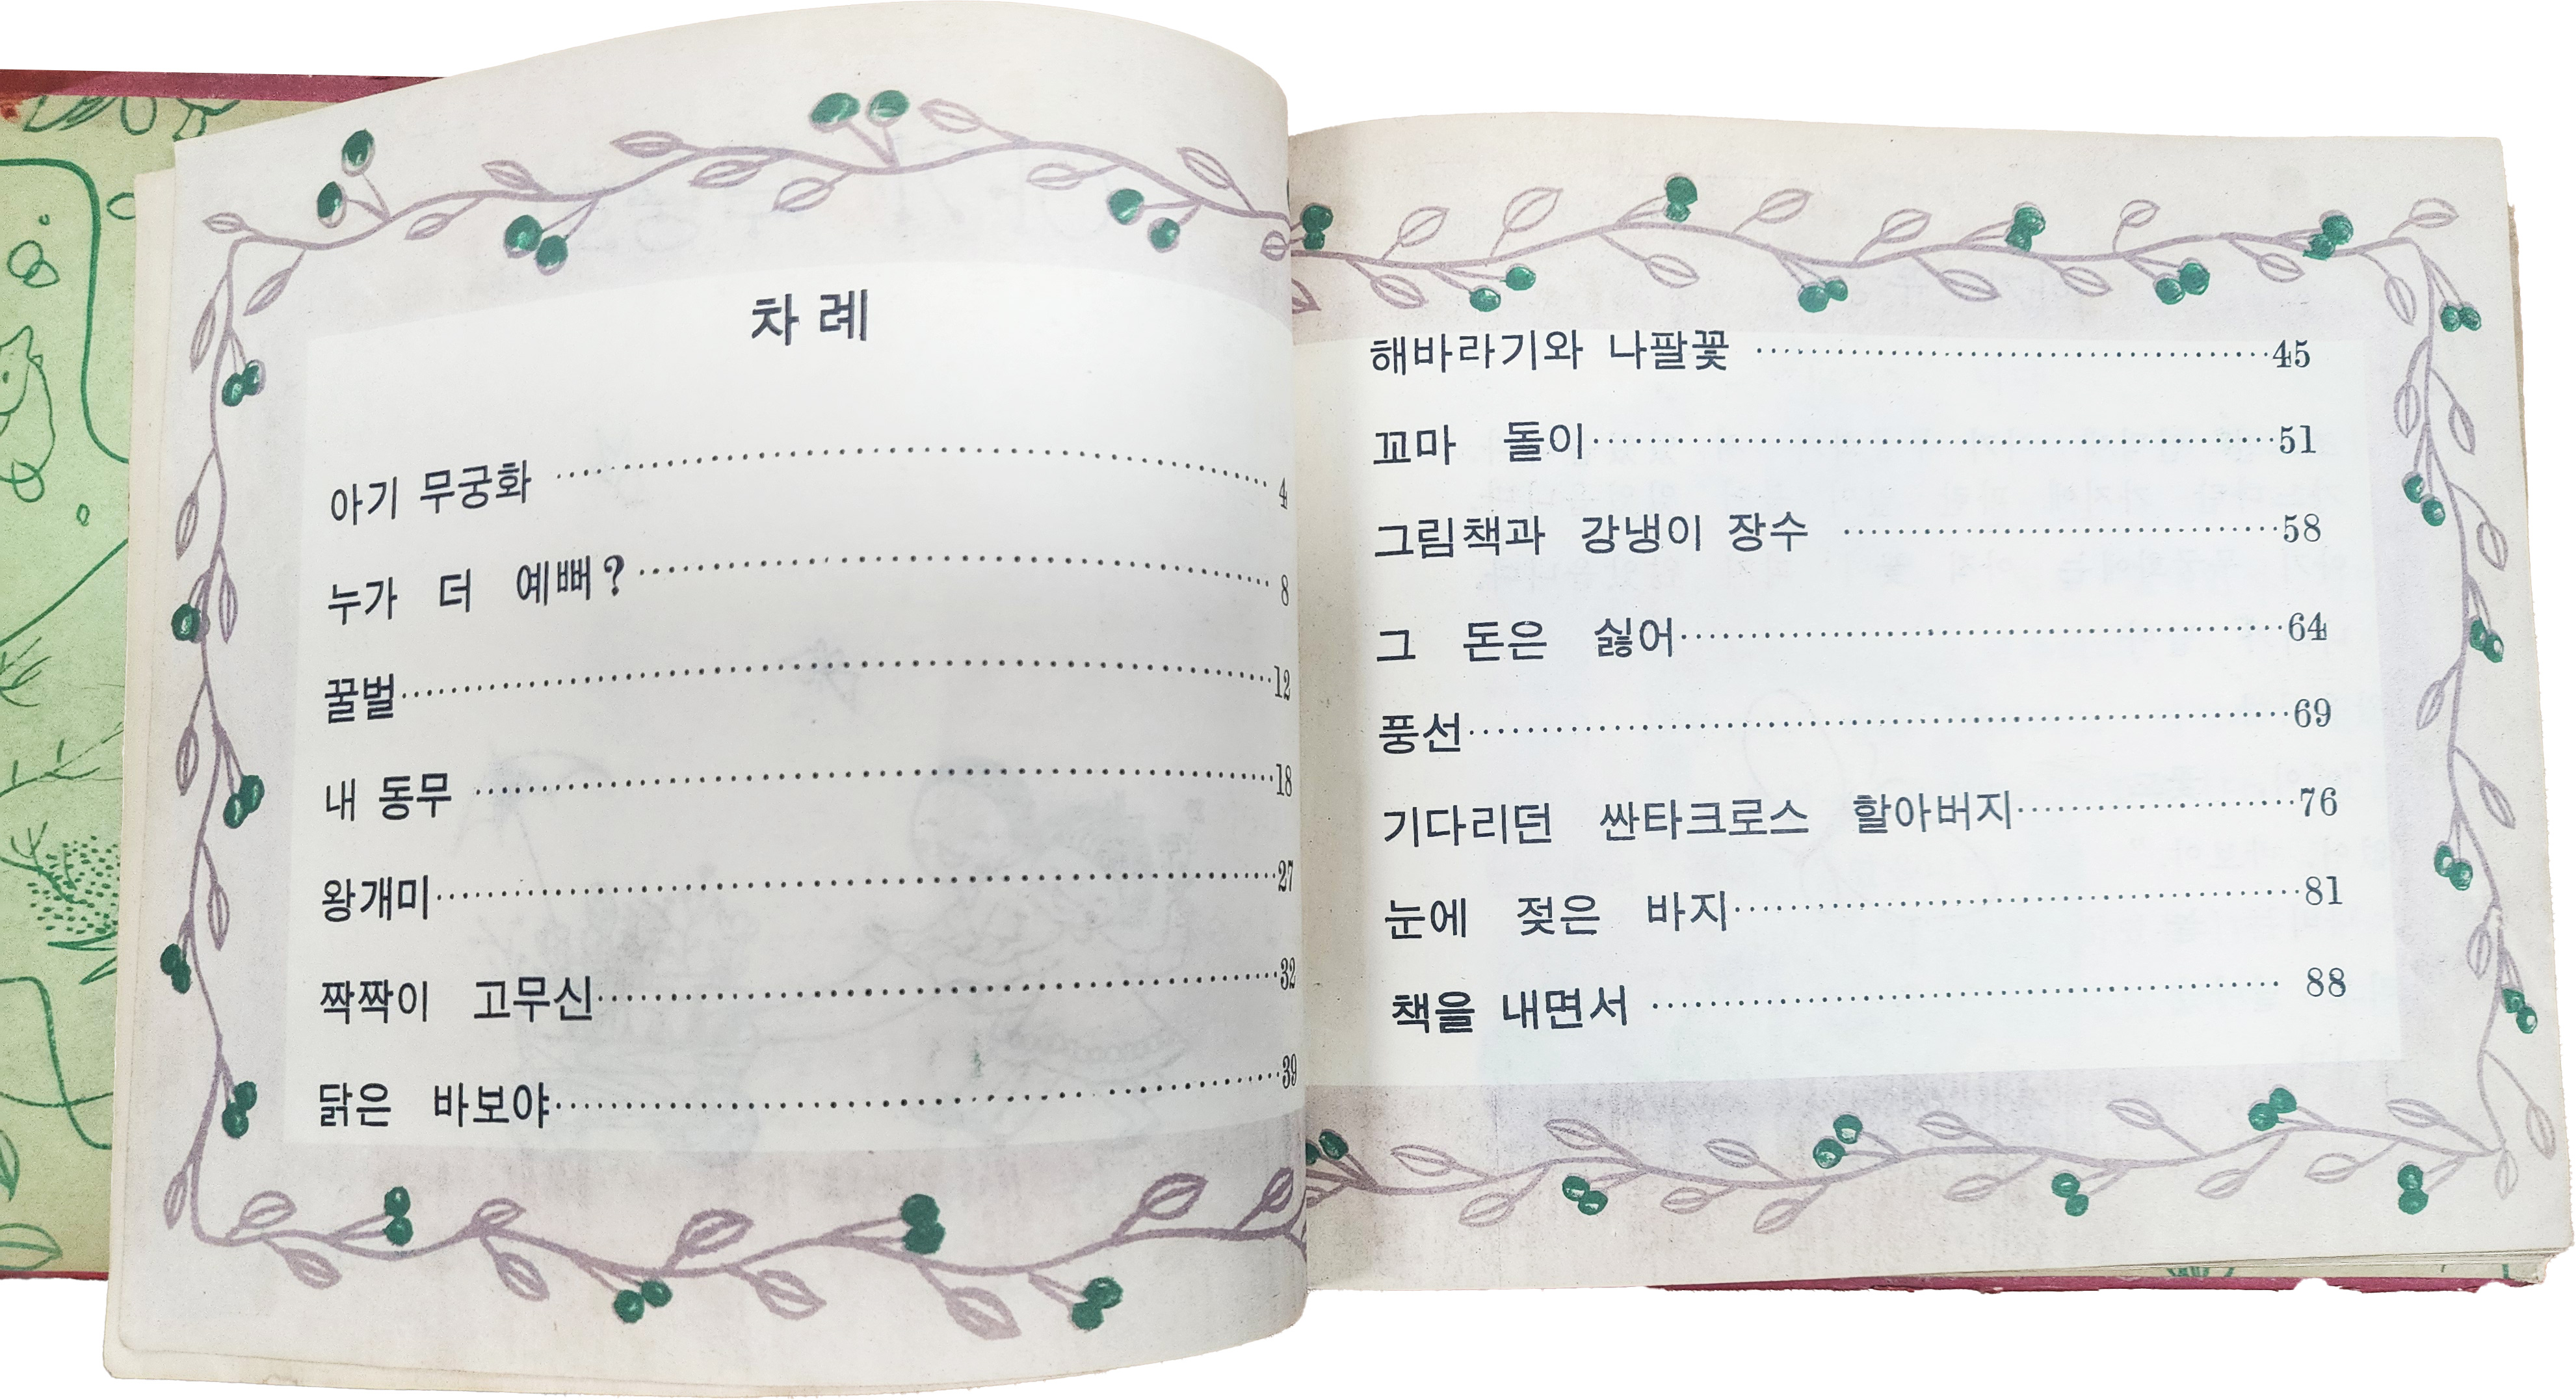 차례
아기 무궁화 ……………… 4
누가 더 예뻐? ……………… 8
꿀벌 ……………… 12
내 동무 ……………… 18
왕개미 ……………… 27
짝짝이 고무신 ……………… 32
닭은 바보야 ……………… 39
해바라기와 나팔꽃 ……………… 45
꼬마 돌이 ……………… 51
그림책과 강냉이 장수 ……………… 58
그 돈은 싫어 ……………… 64
풍선 ……………… 69
기다리던 싼타크로스 할아버지 ……………… 76
눈에 젖은 바지 ……………… 81
책을 내면서 ……………… 88